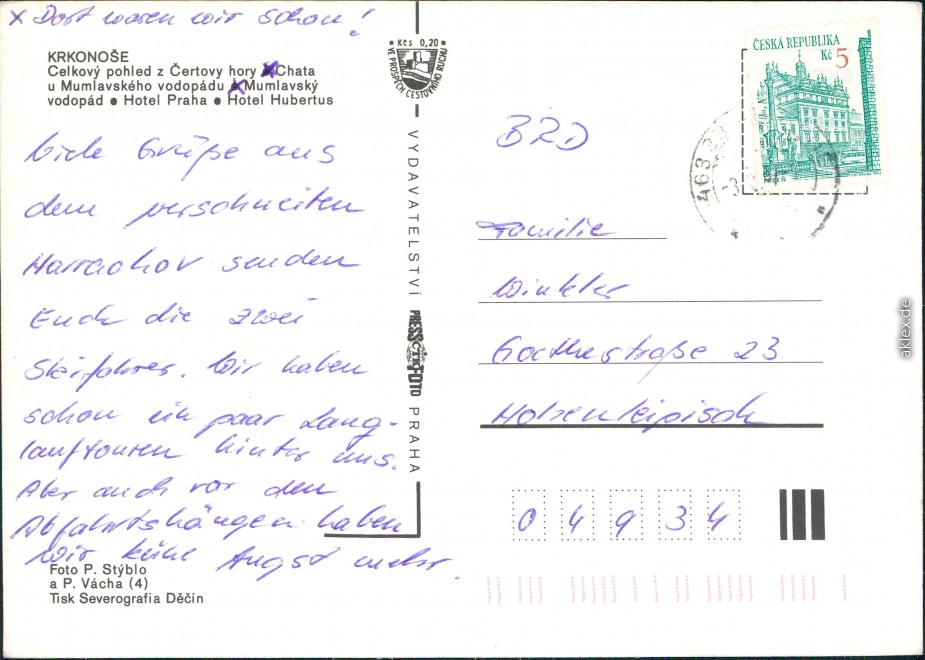 x Dort waren wir schon!
KRKONOŠE
Celkový pohled z Čertovy hory ● Chata
u Mumlavského vodopádu ● Mumlavský
vodopád ● Hotel Praha ● Hotel Hubertus
Viele Grüße aus
dem verschneiten
Harrachov senden
Euch die zwei
Skifahrer. Wir haben
schon ein paar Lang-
lauftouren hinter uns.
Aber auch vor den
Abfahrtshängen haben
wir keine Angst mehr.
Foto P. Stýblo
a P. Vácha (4)
Tisk Severografia Děčín
Kčs 0,20
VE PROSPĚCH CESTOVNÍHO RUCHU
VYDAVATELSTVÍ PRESSFOTO PRAHA
ČTK
ČESKÁ REPUBLIKA
Kč 5
463
BRD
Familie
Winkler
Goethestraße 23
Hohenleipisch
04934
aklex.de